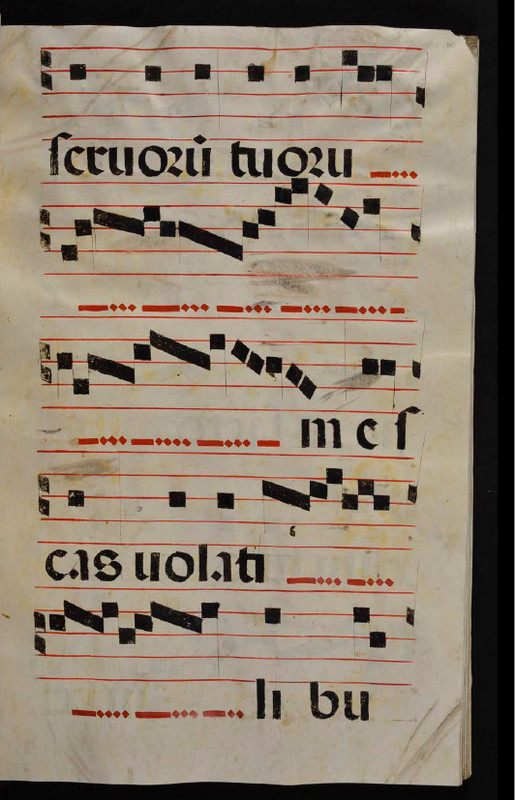 seruoꝝū tuoꝝu
m e s
cas uolati
li bu